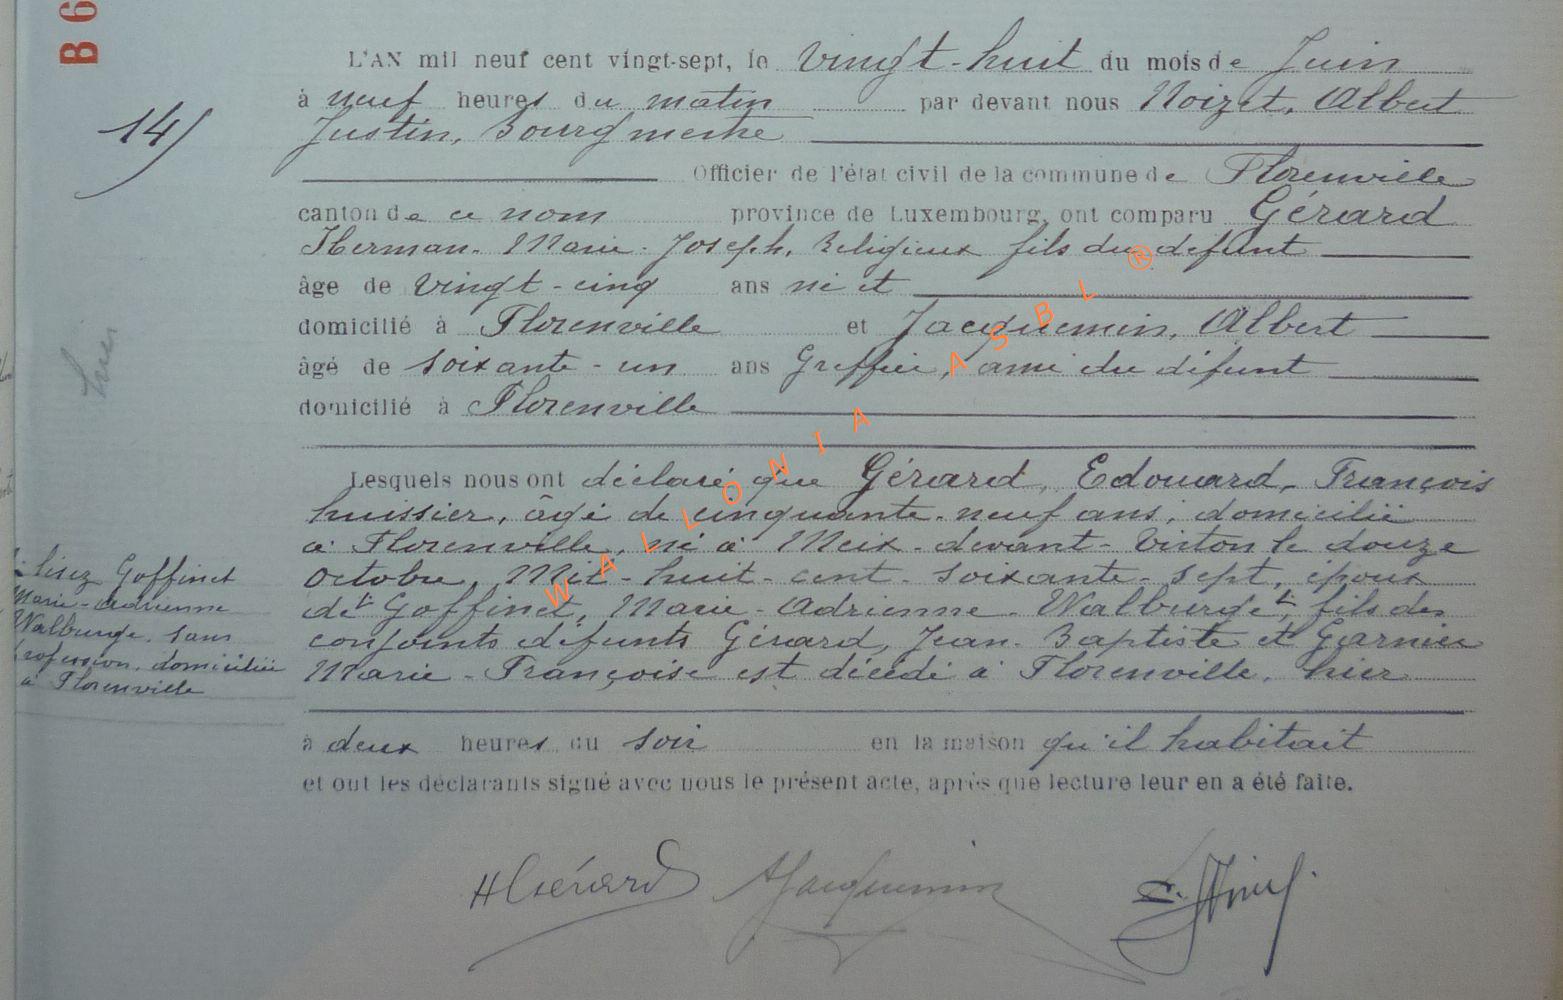 B 6
L'AN mil neuf cent vingt-sept, le vingt-huit du mois de Juin
à neuf heures du matin par devant nous Noizet, Albert
14)
Justin, Bourgmestre
Officier de l'état civil de la commune de Florenville
canton de ce nom province de Luxembourg, ont comparu Gérard
Herman-Marie-Joseph, Religieux fils du défunt
âge de vingt-cinq ans né et
domicilié à Florenville et Jacquemin, Albert
âgé de soixante-un ans Greffier, ami du défunt
domicilié à Florenville
Lesquels nous ont déclaré que Gérard, Edouard, François
huissier, âgé de cinquante-neuf ans, domicilié
à Florenville, né à Meix-devant-Virton le douze
Octobre, Mil-huit-cent-soixante-sept, époux
de Goffinet, Marie-Adrienne-Walburge, fils des
conjoints défunts Gérard, Jean-Baptiste et Garnier
Marie-Françoise est décédé à Florenville, hier
à deux heures du soir en la maison qu'il habitait
et ont les déclarants signé avec nous le présent acte, après que lecture leur en a été faite.
lisez Goffinet
Marie-Adrienne
Walburge, sans
profession, domiciliée
à Florenville
HGérard AJacquemin
WALLONIA ASBL ®